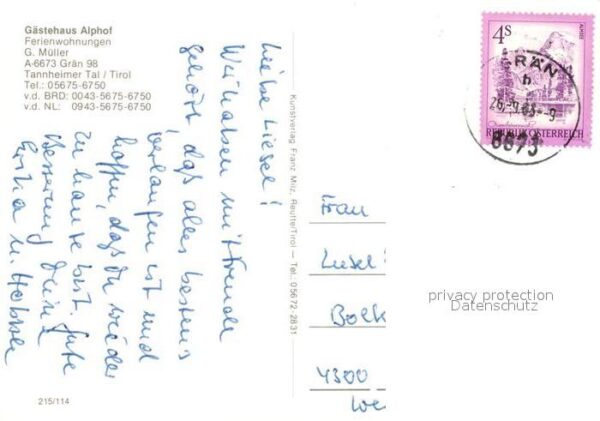 Gästehaus Alphof
Ferienwohnungen
G. Müller
A-6673 Grän 98
Tannheimer Tal / Tirol
Tel.: 05675-6750
v.d. BRD: 0043-5675-6750
v.d. NL: 0943-5675-6750
Liebe Liesel!
Wir haben mit Freude
gehört, das alles bestens
verlaufen ist und
hoffen, das Du wieder
zu hause bist. Gute
Besserung Deine
u.
215/114
Kunstverlag Franz Milz, Reutte/Tirol — Tel.: 05672-2831
4S
ALMSEE
REPUBLIK ÖSTERREICH
GRÄN
b
26.-9.83--9
6673
Frau
Liesel
4300
privacy protection
Datenschutz